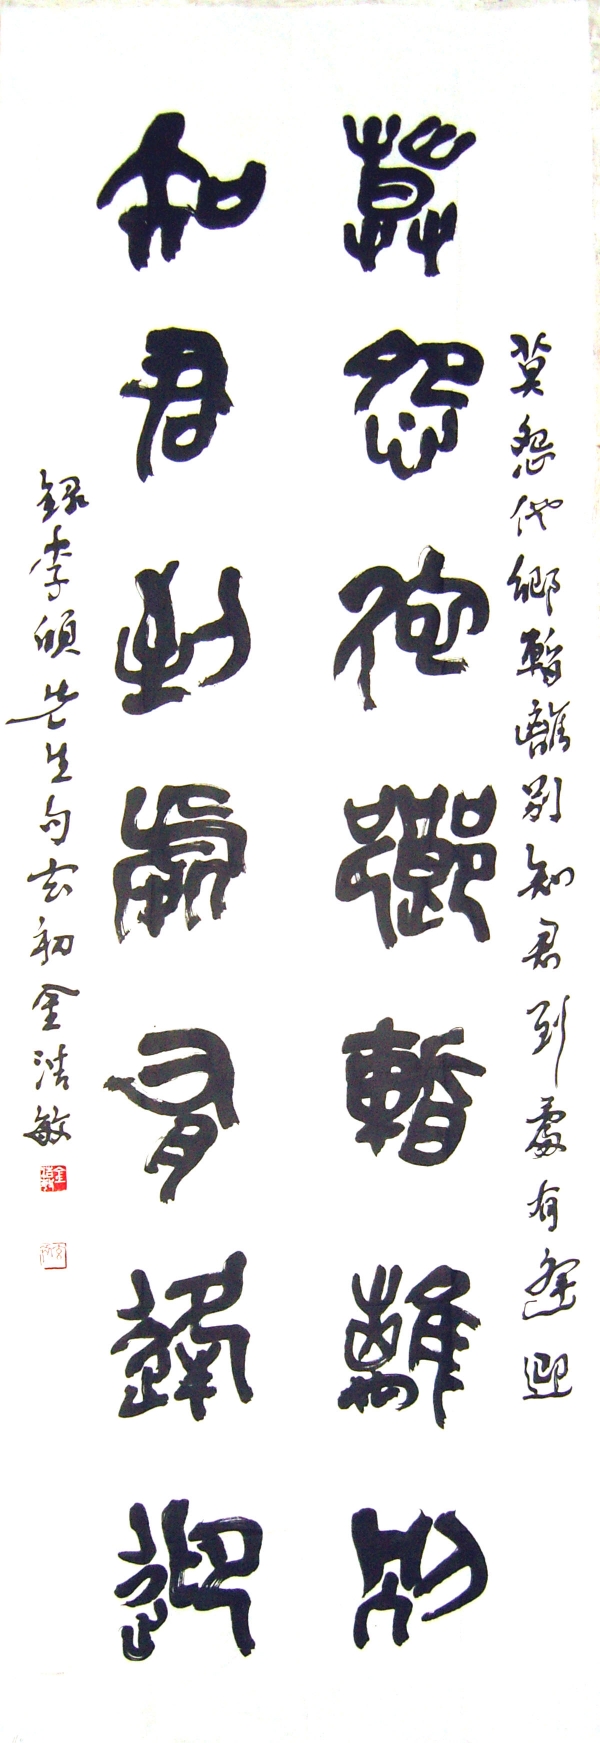 莫怨他鄉暫離別知君到處有逢迎
莫怨他鄉暫離別
知君到處有逢迎
錄李頎先生句玄初金浩敏